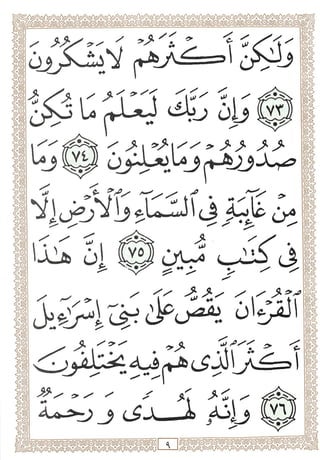 وَلَٰكِنَّ أَكْثَرَهُمْ لَا يَشْكُرُونَ
﴿٧٣﴾ وَإِنَّ رَبَّكَ لَيَعْلَمُ مَا تُكِنُّ
صُدُورُهُمْ وَمَا يُعْلِنُونَ ﴿٧٤﴾ وَمَا
مِنْ غَآئِبَةٍ فِى السَّمَآءِ وَالْأَرْضِ إِلَّا
فِى كِتَابٍ مُّبِينٍ ﴿٧٥﴾ إِنَّ هَٰذَا
الْقُرْءَانَ يَقُصُّ عَلَىٰ بَنِىٓ إِسْرَآءِيلَ
أَكْثَرَ الَّذِى هُمْ فِيهِ يَخْتَلِفُونَ
﴿٧٦﴾ وَإِنَّهُۥ لَهُدًى وَرَحْمَةٌ
٩